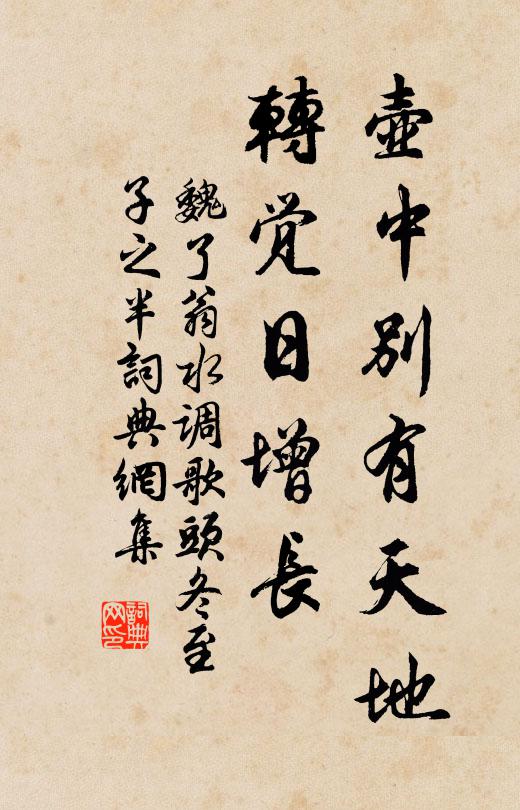 壺中別有天地
轉觉日增長
魏了翁水调歌頭冬至
子之半詞典網集
詞典
网印